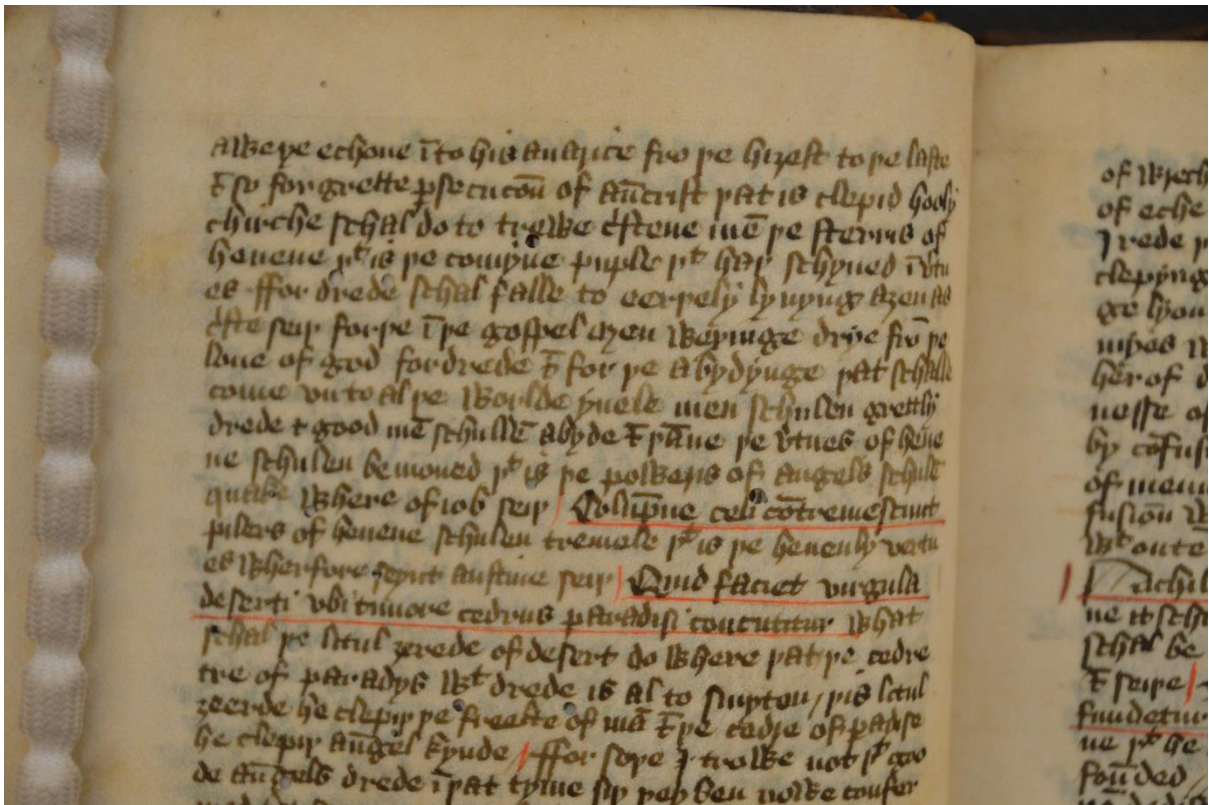 aweye echone īto his auarice fro þe hiȝest to þe laste
⁊ so for grette ꝑsecucōn of āncrist þat is clepid hooly
chirche schal do to trewe c̾stene mē þe sterris of
heuene þͭ is þe comyne puple þͭ haþ schyned ī v̾tu
es ffor drede schal falle to eerþely lyuyng aȝen as
c̾ste seiþ forþe ī þe gospel men wexinge drye fro þe
loue of god for drede ⁊ for þe abydynge þat schalle
come vnto al þe worlde yuele men schulen grettly
drede ⁊ good mē schullē abyde ⁊ þāne þe v̾tues of heue
ne schulen be moued þͭ is þe powers of angels schulē
quake where of iob seiþ / Colūpne celi cōtremescunt
pilers of heuene schulen tremele þͭ is þe heuenly vertu
es wherfore seynt austine seiþ / Quid faciet virgula
deserti vbi timore cedrus paradisi concutitur what
schal þe litul ȝerede of desert do where þat þe cedre
tre of paradys wͭ drede is al to smyton / þis litul
ȝeerde he clepiþ þe freelte of mā ⁊ þe cedre of ꝑadise
he clepiþ aūgel kynde / ffor soþe I trowe not þͭ goo
de aūgels drede ī þat tyme siþ þey ben nowe confer
of wrech
of eche
I rede þ
clepyng
ge lyou
myes
her of d
nesse of
by cōfus
of menn
fusiōn w
wͭ oute
Rachil
ne it sch
schal be
⁊ seiþe /
fundetur
ne þͭ he
foūded